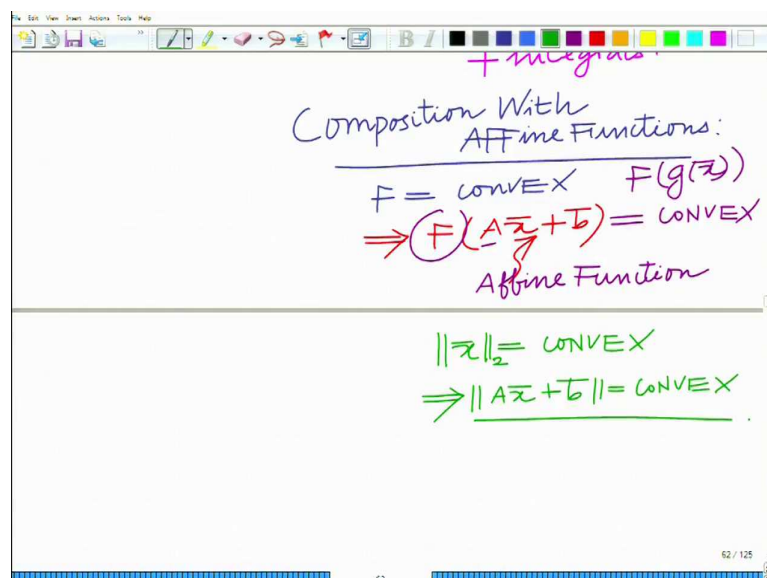 File Edit View Insert Actions Tools Help
B I
+ Integrals.
Composition With
Affine Functions:
F = CONVEX F(g(x̄))
⇒ F(Ax̄ + b̄) = CONVEX
Affine Function
||x̄||₂ = CONVEX
⇒ ||Ax̄ + b̄|| = CONVEX
62 / 125